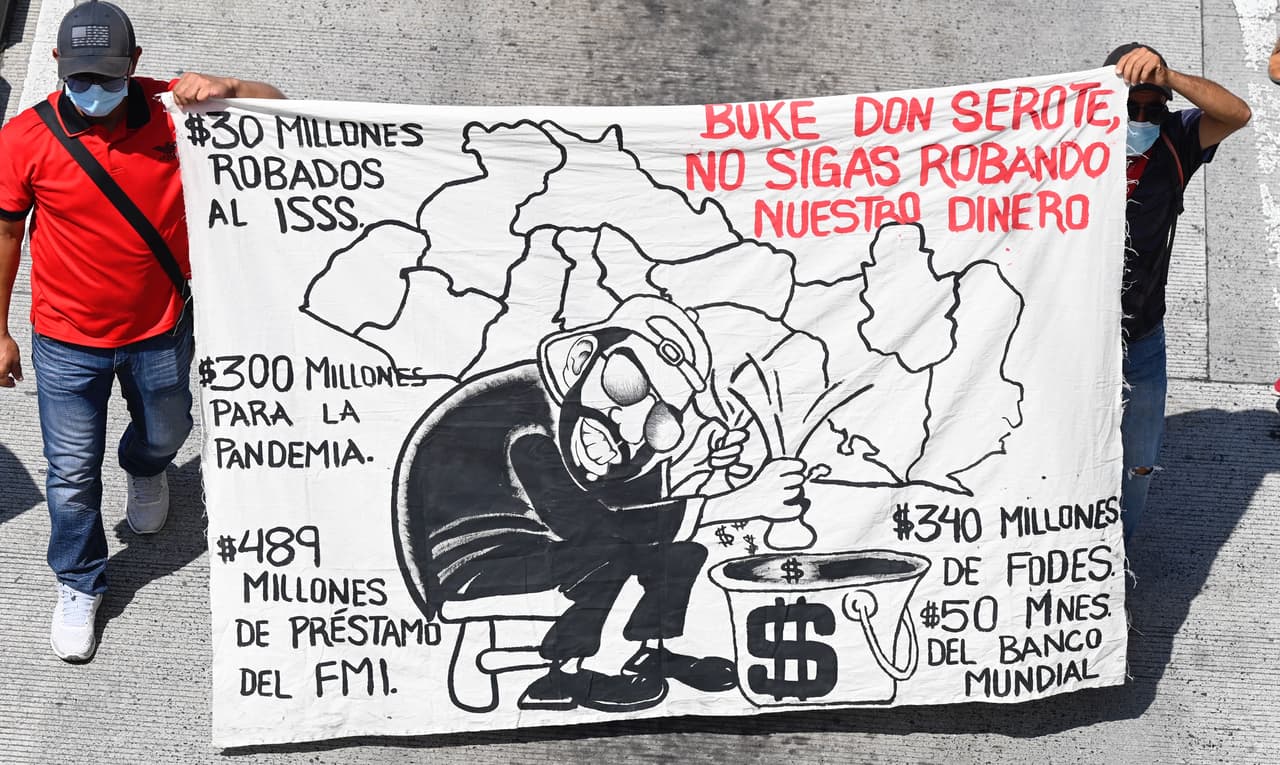 $30 MILLONES
ROBADOS
AL ISSS.
BUKE DON SEROTE,
NO SIGAS ROBANDO
NUESTRO DINERO
$300 MILLONES
PARA LA
PANDEMIA.
$489
MILLONES
DE PRÉSTAMO
DEL FMI.
$340 MILLONES
DE FODES.
$50 MNES.
DEL BANCO
MUNDIAL
$
$
$
$
$